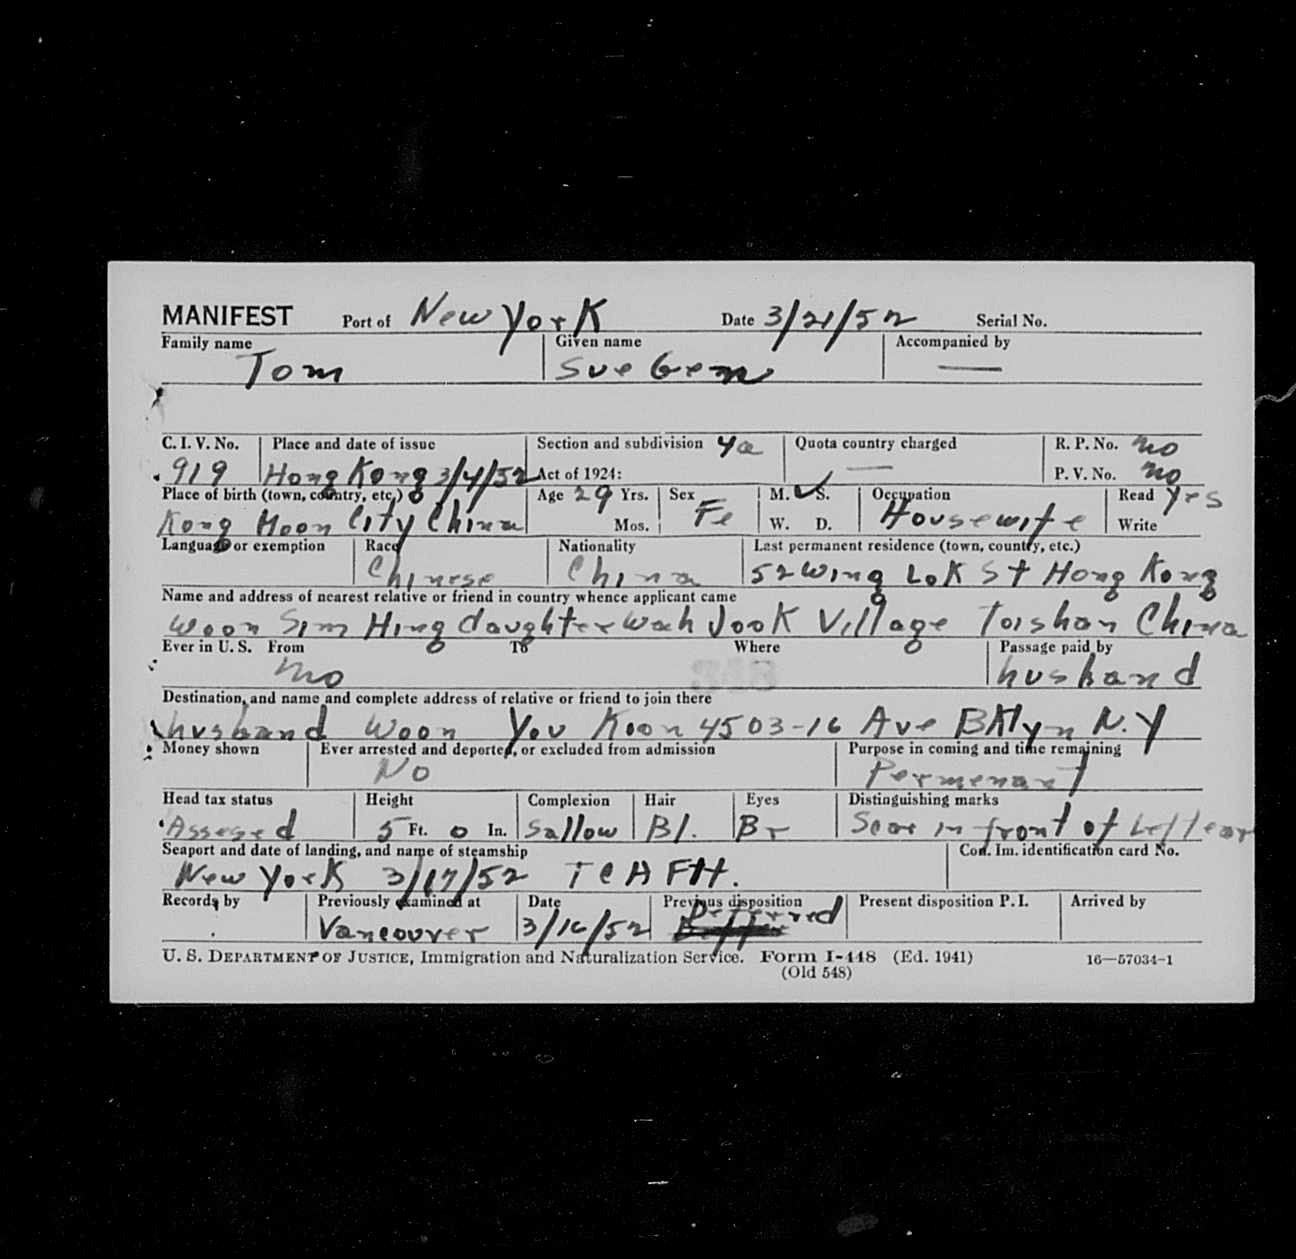 MANIFEST Port of New York Date 3/21/52 Serial No.
Family name Given name Accompanied by
Tom Sue Gem —
C. I. V. No. Place and date of issue Section and subdivision 4a Quota country charged R. P. No. no
919 Hong Kong 3/4/52 Act of 1924: — P. V. No. no
Place of birth (town, country, etc.) Age 29 Yrs. Sex M. ✓ S. Occupation Read yes
Kong Moon City China Mos. Fe W. D. Housewife Write
Language or exemption Race Nationality Last permanent residence (town, country, etc.)
Chinese China 52 Wing Lok St Hong Kong
Name and address of nearest relative or friend in country whence applicant came
Woon Sim Hing daughter Wah Jook Village Toishan China
Ever in U. S. From To Where Passage paid by
no husband
Destination, and name and complete address of relative or friend to join there
husband Woon You Koon 4503-16 Ave BKlyn N.Y
Money shown Ever arrested and deported, or excluded from admission Purpose in coming and time remaining
No Permenant
Head tax status Height Complexion Hair Eyes Distinguishing marks
Assesed 5 Ft. 0 In. Sallow Bl. Br Scar in front of left ear
Seaport and date of landing, and name of steamship Con. Im. identification card No.
New York 3/17/52 TCA Flt.
Records by Previously examined at Date Previous disposition Present disposition P. I. Arrived by
Vancouver 3/16/52 Deferred
U. S. DEPARTMENT OF JUSTICE, Immigration and Naturalization Service. Form I-448 (Ed. 1941) 16—57034-1
(Old 548)